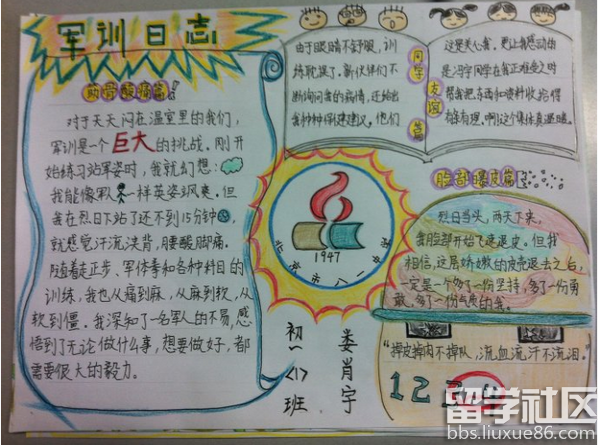 军训日志
肋骨酸痛篇
对于天天闷在温室里的我们,
军训是一个巨大的挑战。刚开
始练习站军姿时,我就幻想:
我能像军人一样英姿飒爽。但
我在烈日下站了还不到15分钟
就感觉汗流浃背,腰酸脚痛。
随着走正步、军体拳和各种科目的
训练,我也从痛到麻,从麻到软,从
软到僵。我深知了一名军人的不易,感
悟到了无论做什么事,想要做好,都
需要很大的毅力。
同学友谊篇
由于眼睛不舒服,训
练耽误了。新伙伴们不
断询问我的病情,还给出
各种各样的建议。他们
这是关心我。更让我感动的
是冯宇同学在我正难受之时
帮我把东西和资料收拾得
相当有理。啊!这个集体真温暖。
1947
北京市八一中
初一<1>班
娄肖宇
脸部爆皮篇
烈日当头,两天下来,
我脸部开始飞速退皮。但我
相信,这层娇嫩的皮壳退去之后,
一定是个多了一份坚持,多了一份勇
敢,多了一份气质的我。
“掉皮掉肉不掉队,流血流汗不流泪。”
1234
留学社区
bbs.liuxue86.com